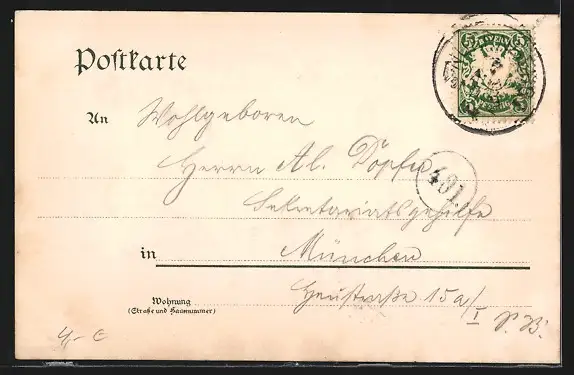 Postkarte
An Wohlgeboren
Herrn Al. Döpfer
Sekretariatsgehilfe
401.
in München
Wohnung
(Straße und Hausnummer)
Heustraße 15a/I
P. B.